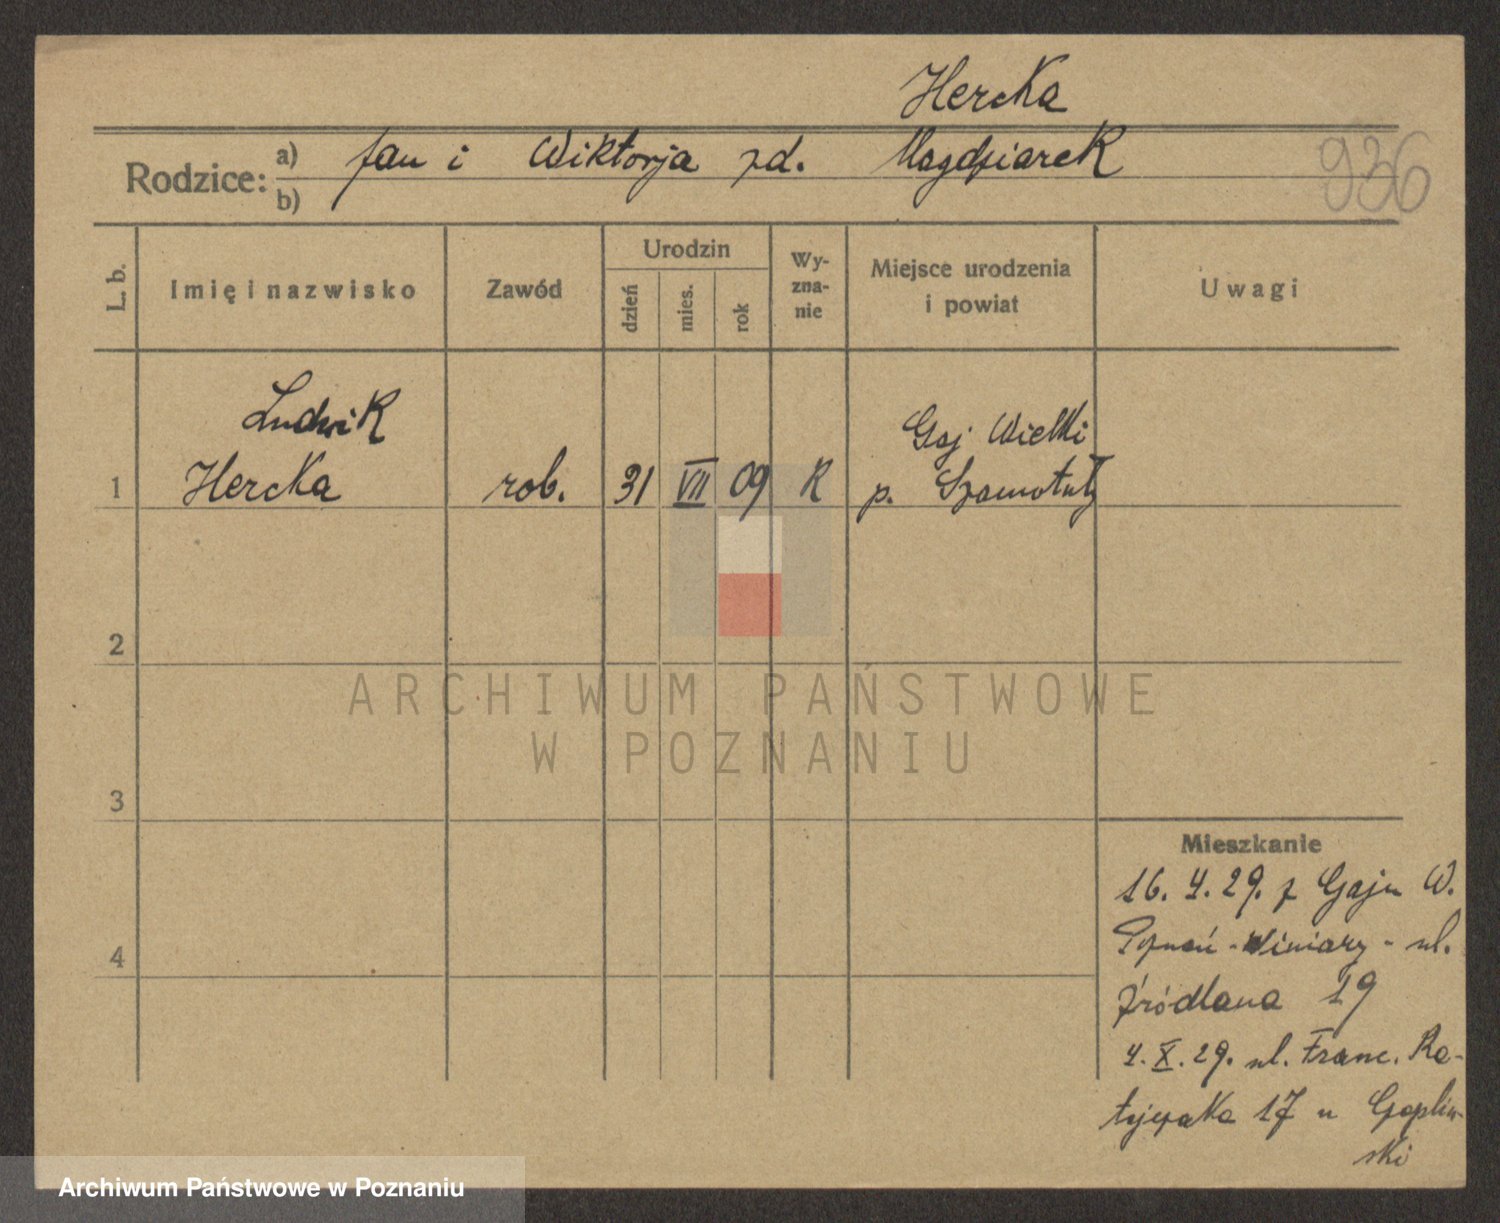 Hercka
Rodzice: a) Jan i Wiktorja zd. Magdziarek
b)
936
L. b.
Imię i nazwisko
Zawód
Urodzin
dzień
mies.
rok
Wy-
zna-
nie
Miejsce urodzenia
i powiat
Uwagi
Ludwik
Gaj Wielki
1 Hercka rob. 31 VII 09 R p. Szamotuły
2
ARCHIWUM PAŃSTWOWE
W POZNANIU
3
Mieszkanie
16. 4. 29. z Gaju W.
Poznań - Winiary - ul.
4
Źródlana 19
4. X. 29. ul. Franc. Ra-
tajczaka 17 u
ski
Archiwum Państwowe w Poznaniu